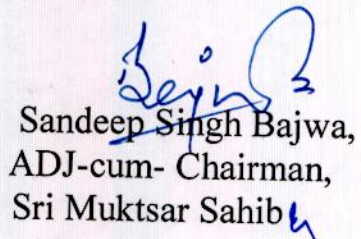 Sandeep Singh Bajwa,
ADJ-cum- Chairman,
Sri Muktsar Sahib